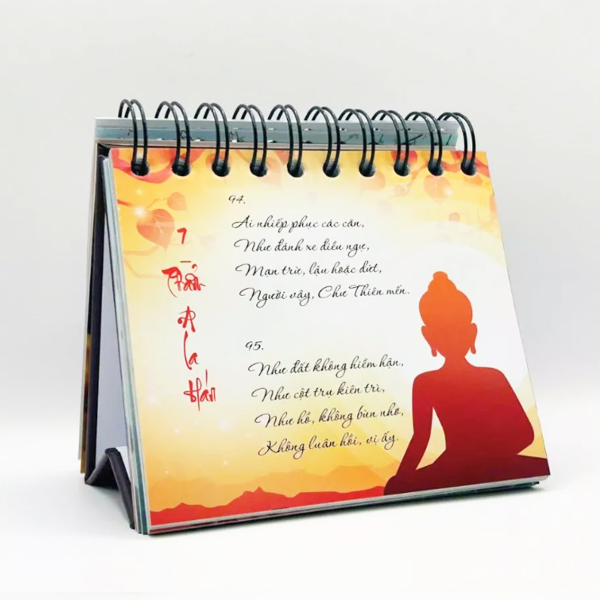 7
-
Phẩm
A
La
Hán
94.
Ai nhiếp phục các căn,
Như đánh xe điều ngự,
Mạn trừ, lậu hoặc dứt,
Người vậy, Chư Thiên mến.
95.
Như đất không hiềm hận,
Như cột trụ kiên trì,
Như hồ, không bùn nhơ,
Không luân hồi, vị ấy.